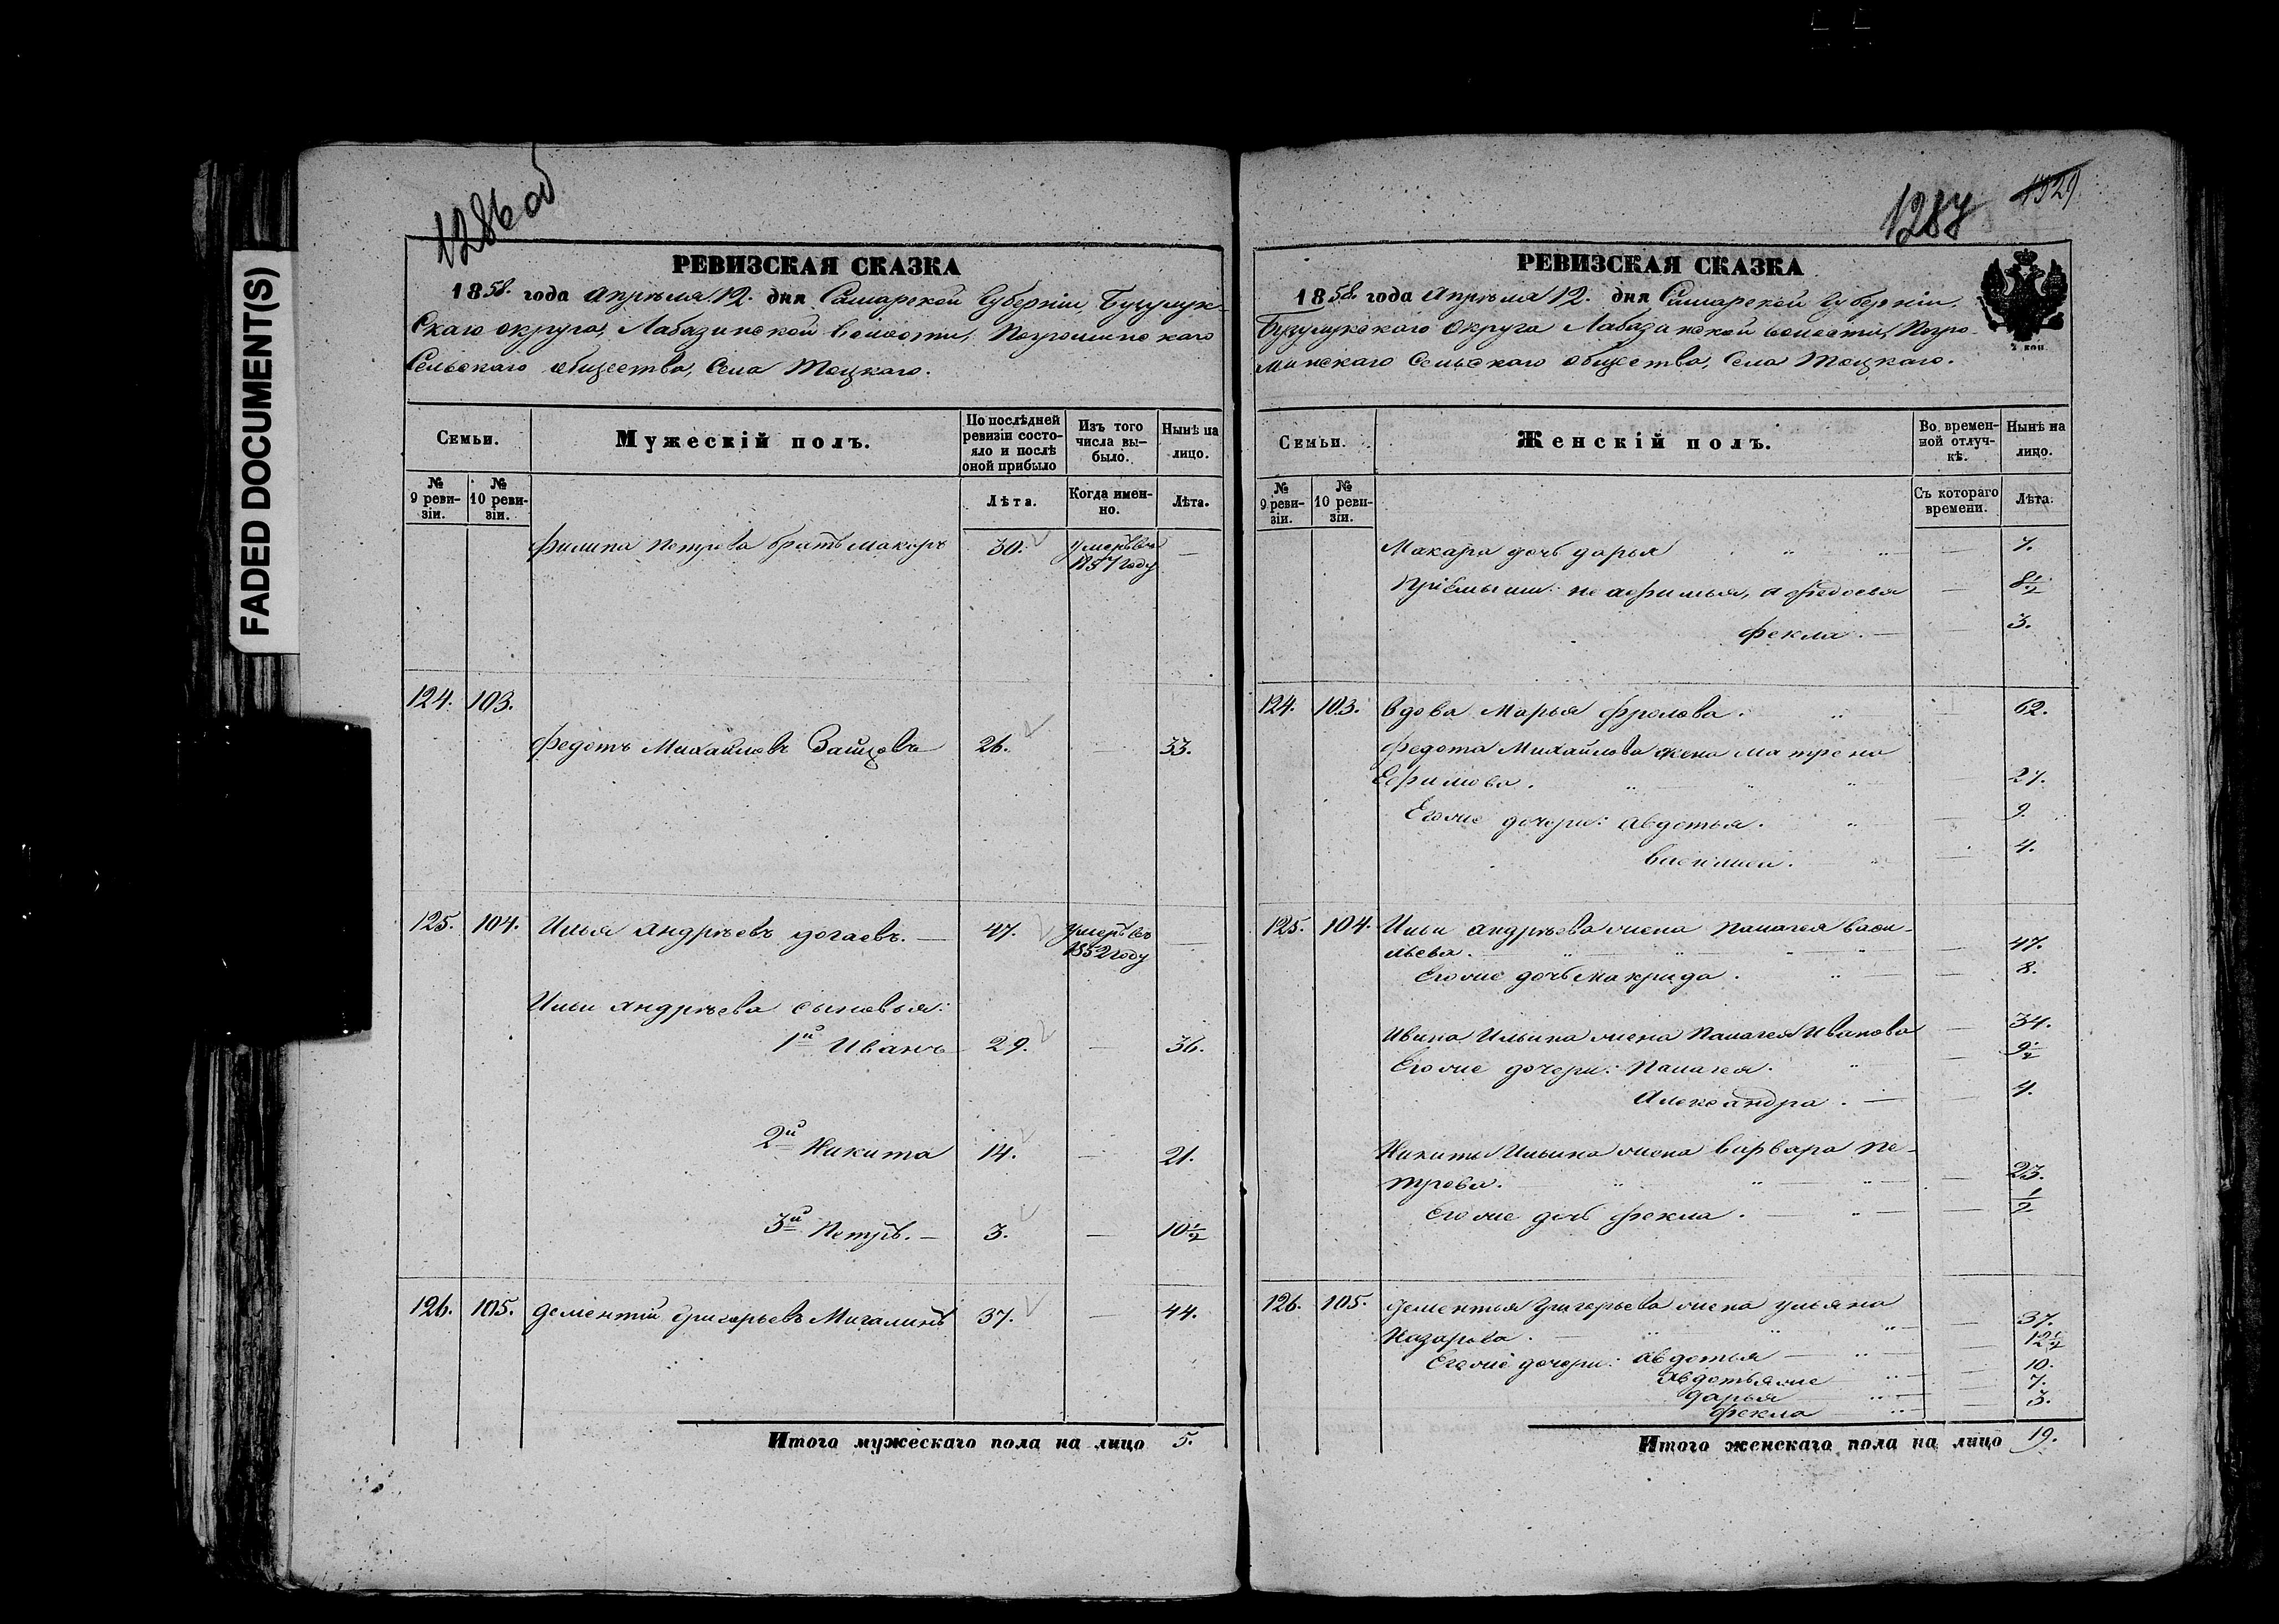 FADED DOCUMENT(S)
1286 об
РЕВИЗСКАЯ СКАЗКА
1858. года Апрѣля 12. дня Самарской Губерніи, Бузулук-
Скаго округа, Лабазинской волости, Погроминскаго
Сельскаго общества, Села Тоцкаго.
Семьи.
Мужескій полъ.
По послѣдней ревизіи состояло и послѣ оной прибыло
Изъ того числа выбыло.
Нынѣ на лицо.
№ 9 ревизіи.
№ 10 ревизіи.
Лѣта.
Когда именно.
Лѣта.
Филипа Петрова братъ Макаръ 30. умеръ въ 1857 году —
124. 103.
Федотъ Михайловъ Зайцовъ 26. — 33.
125. 104. Илья Андрѣевъ догаевъ. — 47. умеръ въ 1852 году —
Ильи Андрѣева сыновья:
1й Иванъ 29. — 36.
2й Никита 14. — 21.
3й Петръ. — 3. — 10½
126. 105. Дементій Григорьевъ Мигалинъ 37. — 44.
Итого мужескаго пола на лицо 5.
1287 1329
РЕВИЗСКАЯ СКАЗКА
1858 года Апрѣля 12. дня Самарской Губерніи,
Бузулукскаго Округа Лабазинской волости, Погро-
минскаго Сельскаго общества, Села Тоцкаго.
2 коп
Семьи.
Женскій полъ.
Во временной отлучкѣ.
Нынѣ на лицо.
№ 9 ревизіи.
№ 10 ревизіи.
Съ котораго времени.
Лѣта.
Макара дочь дарья — 7.
Пріемыши: не афимья, а федосья — 8½
фекла. — 3.
124. 103. вдова Марья фролова. — 62.
Федота Михайлова жена матрена
Ефимова. — 27.
Егоже дочери: авдотья. — 9.
василиса. — 4.
125. 104. Ильи андрѣева жена Палагея васи-
льева. — 47.
Егоже дочь макрида. — 8.
Ивана Ильина жена Палагея Иванова — 34.
Егоже дочери: Палагея. — 9½
Александра. — 4.
Никиты Ильина жена варвара Пе-
трова. — 23.
Егоже дочь фекла. — ½
126. 105. Дементья Григорьева жена ульяна
Назарова. — 37.
Егоже дочери: авдотья — 12½
авдотьяже — 10.
дарья — 7.
фекла — 3.
Итого женскаго пола на лицо 19.